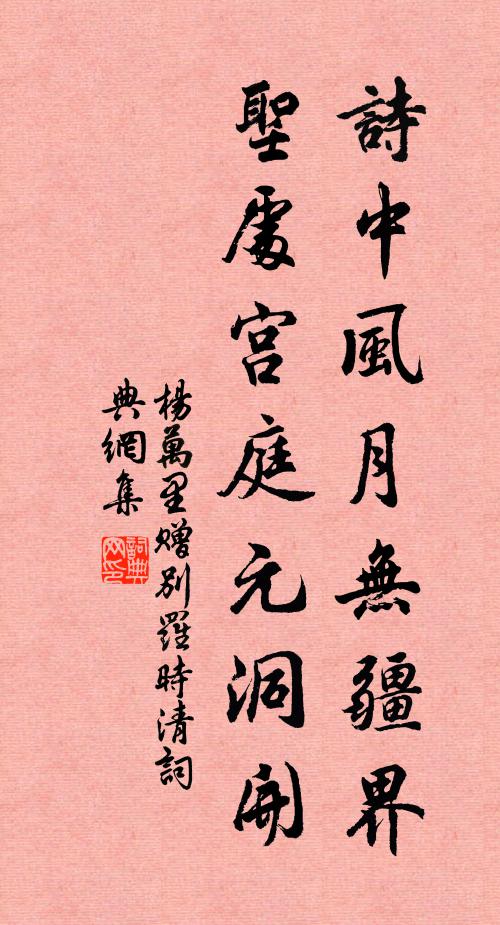 詩中風月無疆界
聖處宮庭元洞開
楊萬里贈別羅時清詞
典網集
詞典
网印